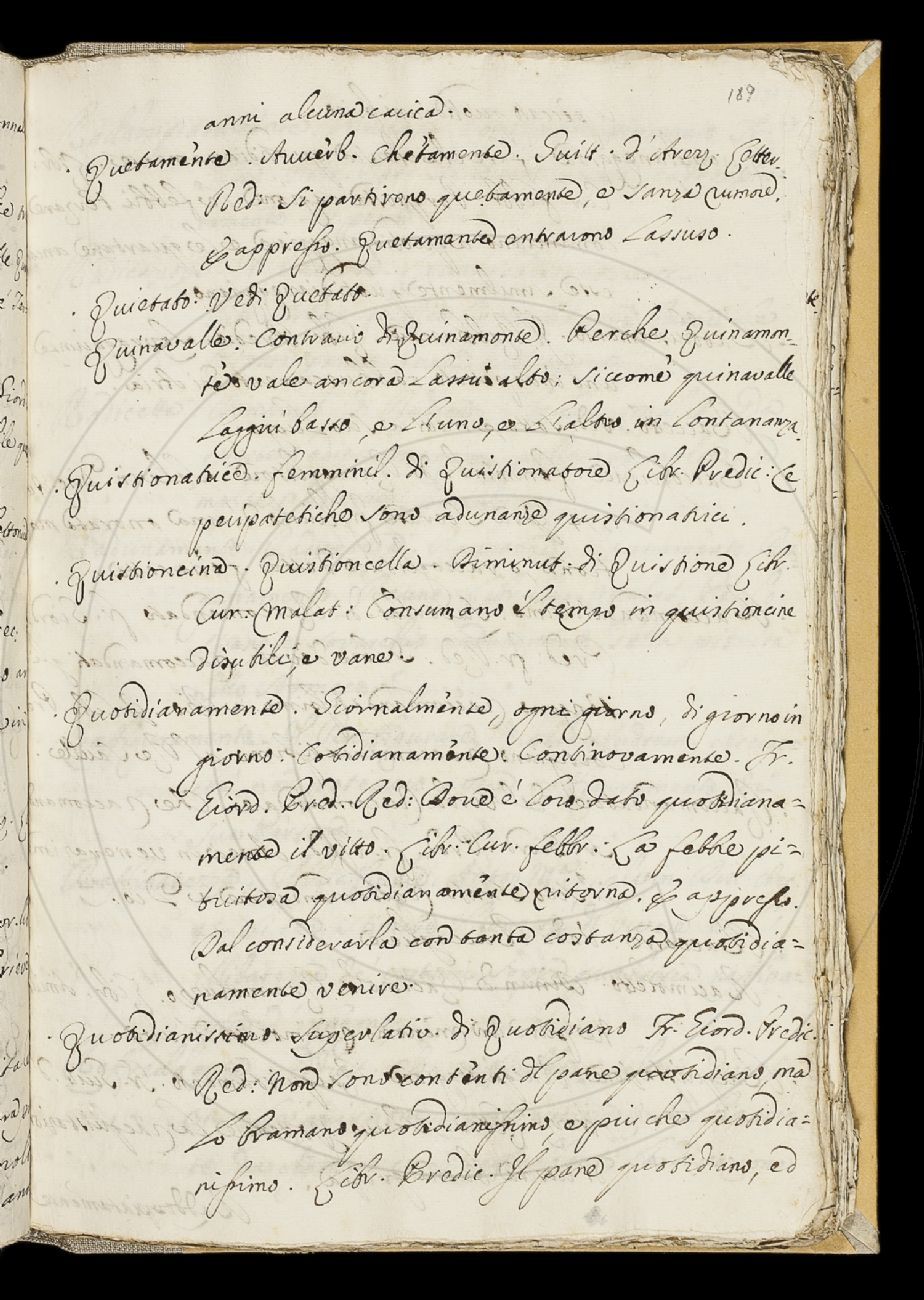 189
anni alcuna carica.
Quetamente. Avverb. Chetamente. Guitt. d'Arezz. Letter.
Red: Si partirono quetamente, e sanza rumore.
E appresso. Quetamente entrarono lassuso.
Quietato. Vedi Quetato.
Quinavalle. Contrario di Quinamonte. Perche Quinamon-
te vale ancora lassù alto; siccome quinavalle
laggiù basso, e l'uno, e l'altro in lontananza.
Quistionatrice. femminil. di Quistionatore Libr. Predic: Le
peripatetiche sono adunanze quistionatrici.
Quistioncina. Quistioncella. Diminut: di Quistione Libr.
Cur: Malat: Consumano il tempo in quistioncine
disutili, e vane.
Quotidianamente. Giornalmente, ogni giorno, di giorno in
giorno. Cotidianamente. Continovamente. Fr.
Giord. Pred. Red: Dove è loro dato quotidiana=
mente il vitto. Libr. Cur. febbr.: La febbre pi=
tuitosa quotidianamente ritorna. E appresso.
Dal considerarla con tanta costanza quotidia=
namente venire.
Quotidianissimo. Superlativ. di Quotidiano Fr. Giord. Predic.
Red: Non sono contenti del pane quotidiano, ma
lo bramano quotidianissimo, e più che quotidia=
nissimo. Libr. Predic. Il pane quotidiano, ed